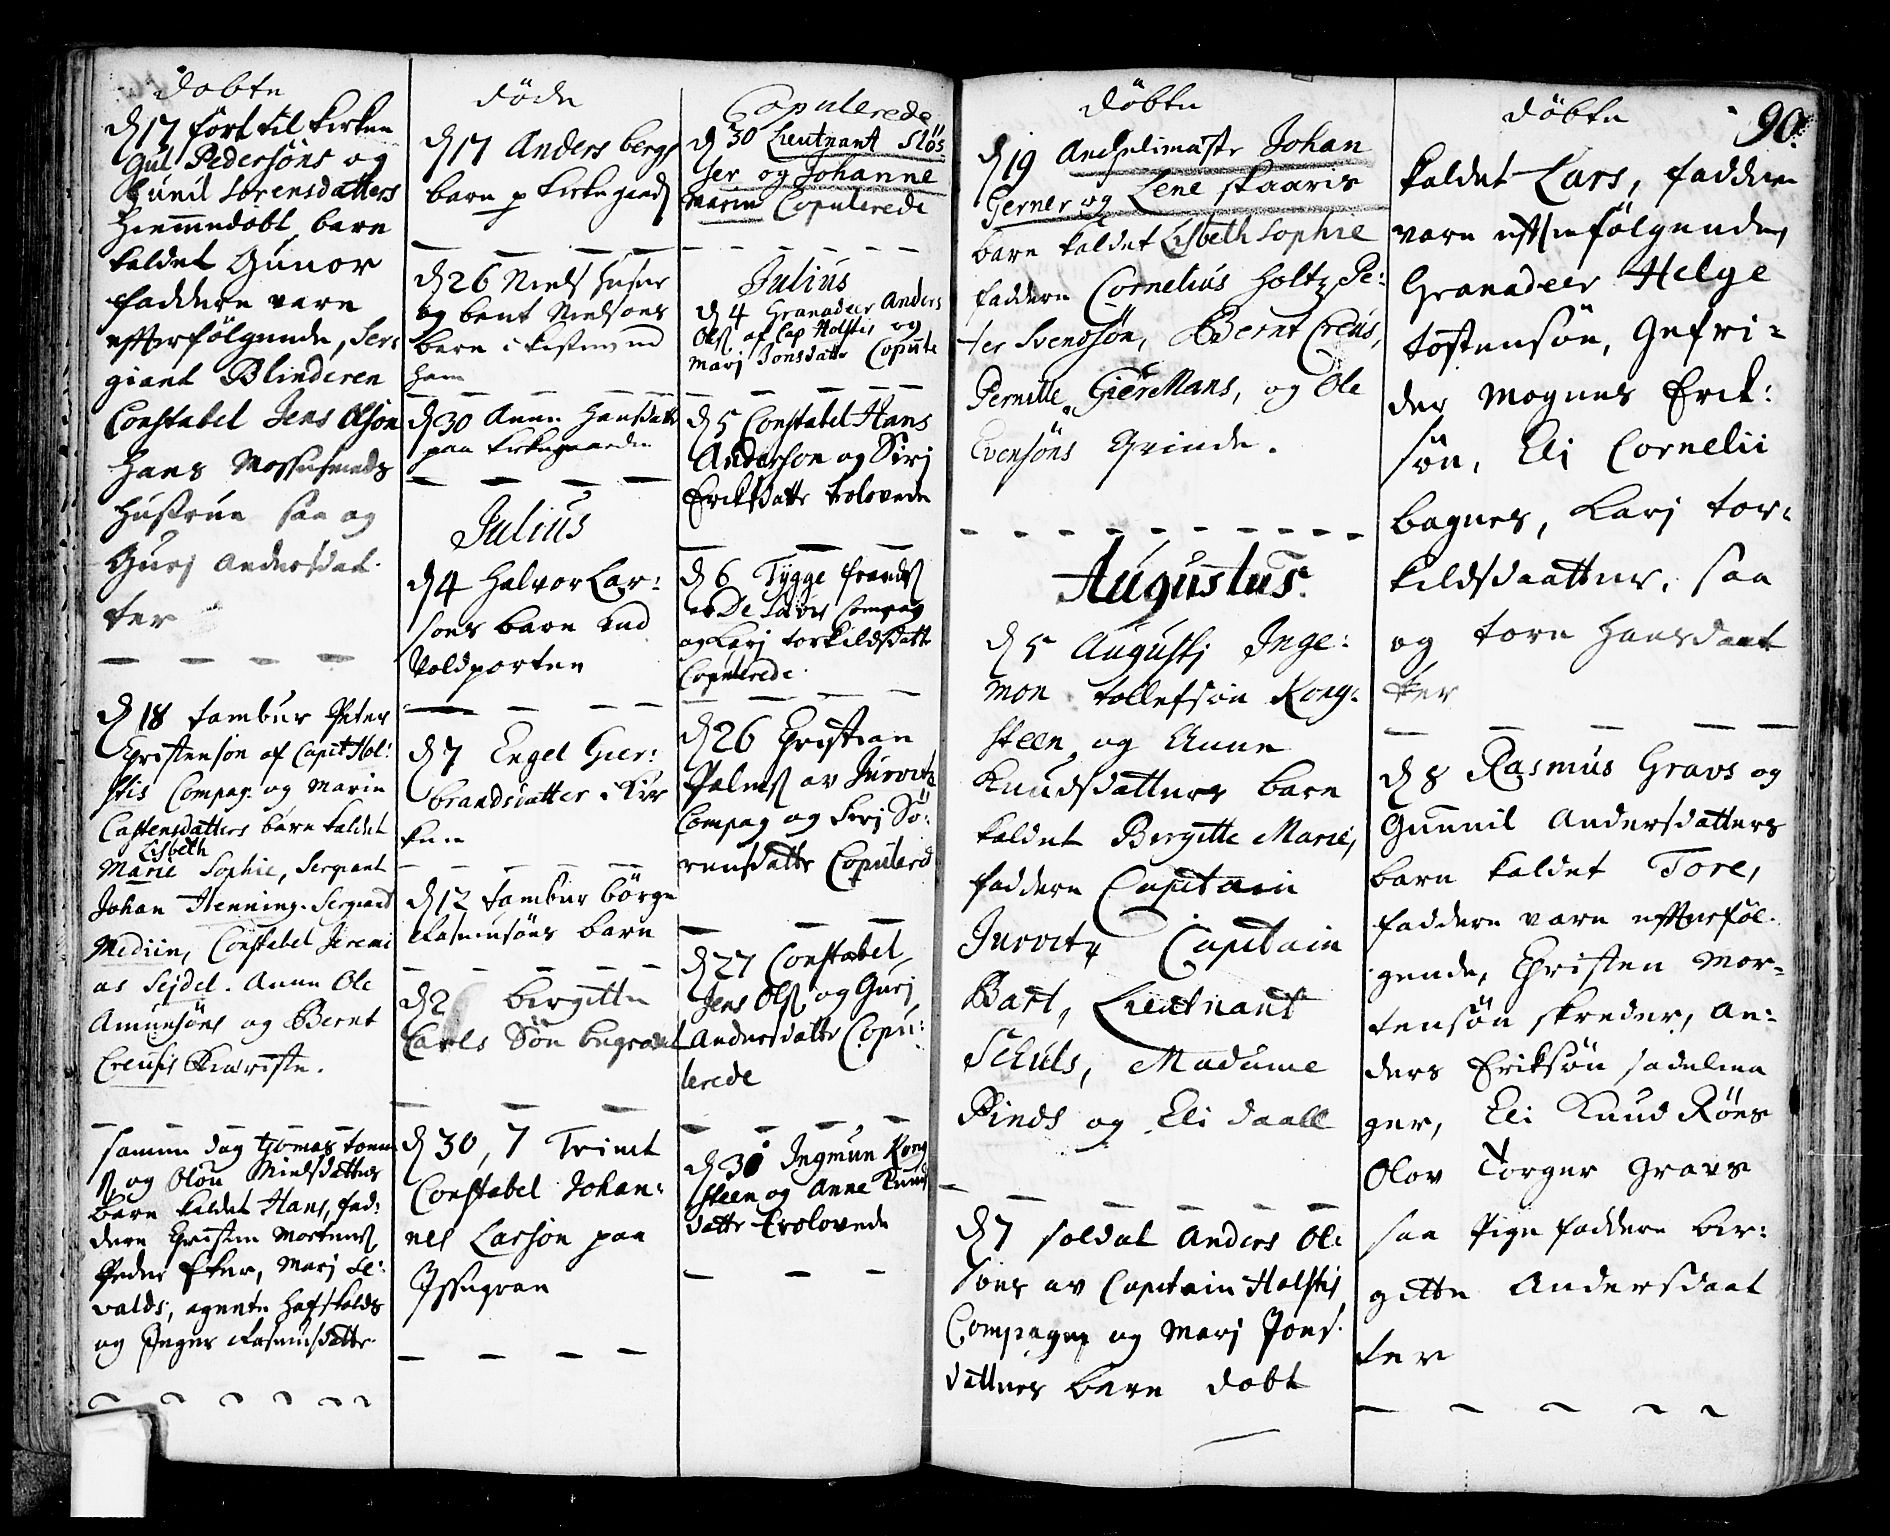 døbte
d 17 fört til kirken
Gul Pedersöns og
Gunil Sorensdatters
Hiemmedöbt barn
kaldet Gunor
faddere vare
effterfölgende, Ser:
giant Blinderen
Constabel Jens Olson
Hans
Hustrue saa og
Gurj Andersdat:
ter
d 18 tambur Peter
Christenson af Capit Hol:
stis Compag. og Marin
Castensdatters barn kaldet
Lisbeth
Marie Sophie, Sergiant
Johan Henning. Sergiant
Mediin, Constabel Jeremi
as Sejdel. Anne Ole
Amunsöns og Bernt
Creusis
samme dag Tomas
og Olou Nielsdatters
barn kaldet Hans, fad:
dere Christen Mortens
Peder Eker, Marj Se:
valds, agente
og Inger Rasmusdatte
døde
d 17 Anders bergs
barn p kirkegaard
d 26 Niels Husers
og bent Nielsons
barn i
d 30 Anne Hansdatt
paa kirkegaarden
Julius
d 4 Halvor Lar:
sons barn ved
Voldporten
d 7 Engel Gier:
brandsdatter i Kir
ken
d 12 tambur börge
Rasmusöns barn
d 2 birgitte
Carls Sön begravet
d 30, 7 Trint
Constabel Johan:
nes Larson paa
Issegran
Copulerede
d 30 Lieutnant Slös:
ser og Johanne
Marin Copulerede
Julius
d 4 Granadeer Anders
Ols af Cap Holstis og
Marj Jonsdatte Copule
d 5 Constabel Hans
Anderson og Sirj
Eriksdatte trolovede
d 6 Tygge frands
Compag
og Karj torkildsdatte
Copulerede
d 26 Christian
Palms av Jurvitz
Compag og Sö:
rensdatte Copulered
d 27 Constabel
Jens Ols og Gurj
Andersdatte Copu:
lerede
d 30 Ingmun Kong
steen og Anne Knuds
datte Trolovede
döbte
d 19 Johan
Gerner og Lene Skaaris
barn kaldet Lisbeth Sophie
faddere Cornelius Holtz Pe:
ter Svendsön, Bernt Creus,
Pernille Giermans, og Ole
Evensöns Qvinde.
Augustus
d 5 Augustj Inge:
mon tollefson Kong:
steen og Anne
Knudsdatters barn
kaldet Birgitte Marie,
faddere Capitain
Jurvitz Capitain
Bart, Lieutnant
Schuls, Madame
Pinds og Eli daall
d 7 soldat Anders Ol:
sons av Capitain Holstis
Compagni og Marj Jons
datters barn döbt
döbte
90.
kaldet Lars, faddere
vare effterfölgende,
Granadeer Helge
tostensön, Gefri:
der Mognus Erik:
sön, Eli Cornelii
bagners, Karj tor:
kildsdaatter, saa
og torn Hansdaat
ter
d 8 Rasmus Gravs og
Gunnil Andersdatters
barn kaldet Tore,
faddere vare effterföl:
gende, Christen Mor:
tensön skreder, An:
ders Eriksön sadelma
ger, Eli Knud Röes
Olov Torger Gravs
saa Pige faddere bir:
gitte Andersdaat
ter